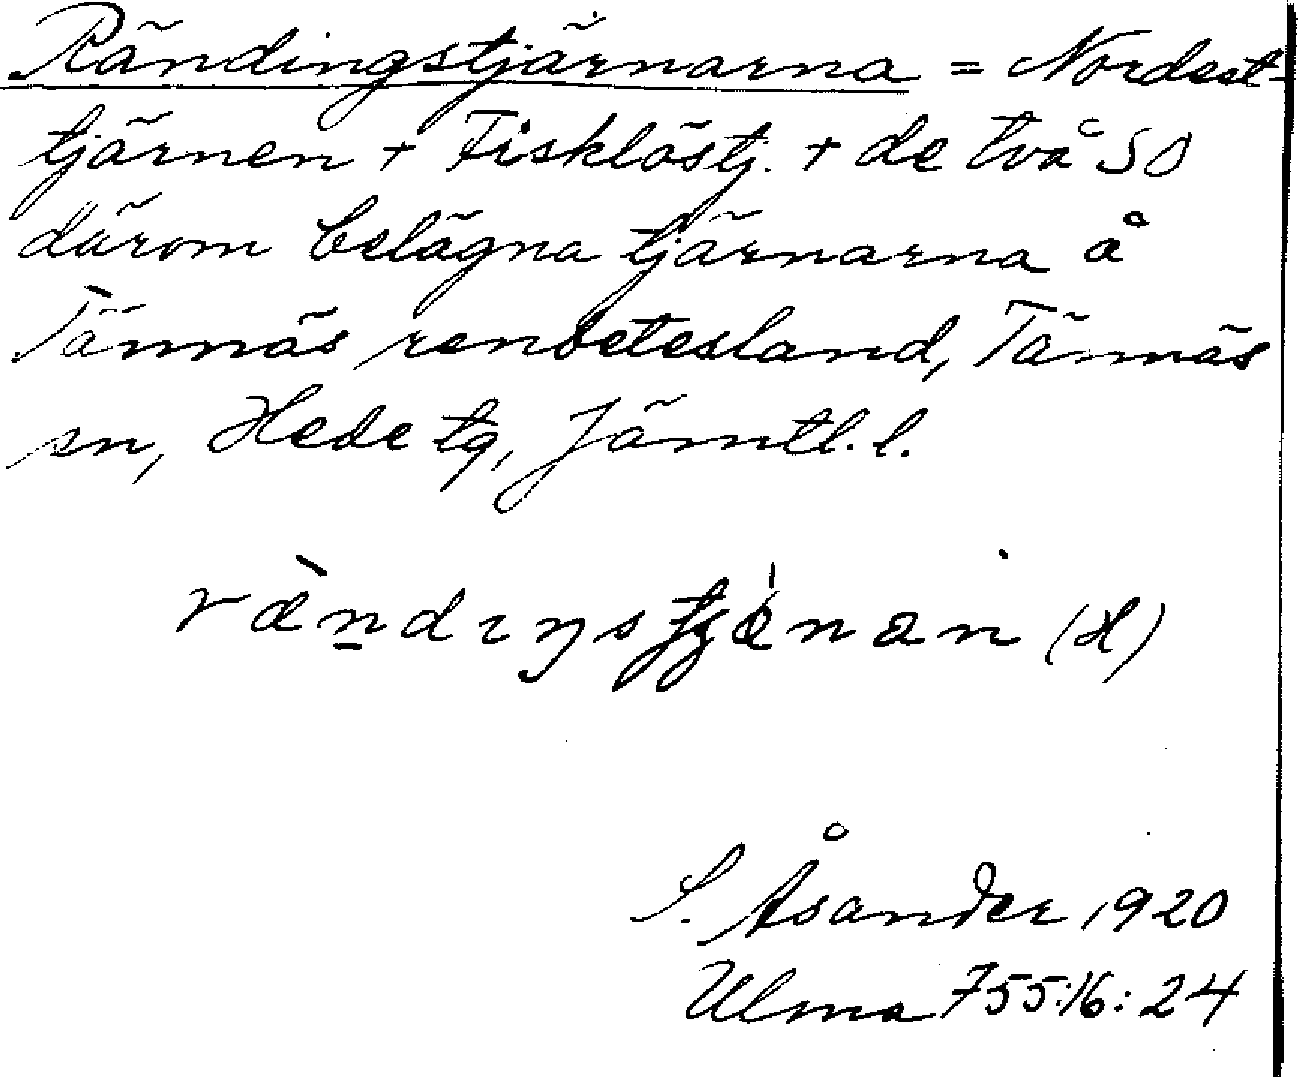 Rändingstjärnarna = Nordest-
tjärnen + Fisklöstj. + de två SO
därom belägna tjärnarna å
Tännäs renbetesland, Tännäs
sn, Hede tg, Jämtl. l.
(H)
S. Åsander 1920
Ulma 755:16:24